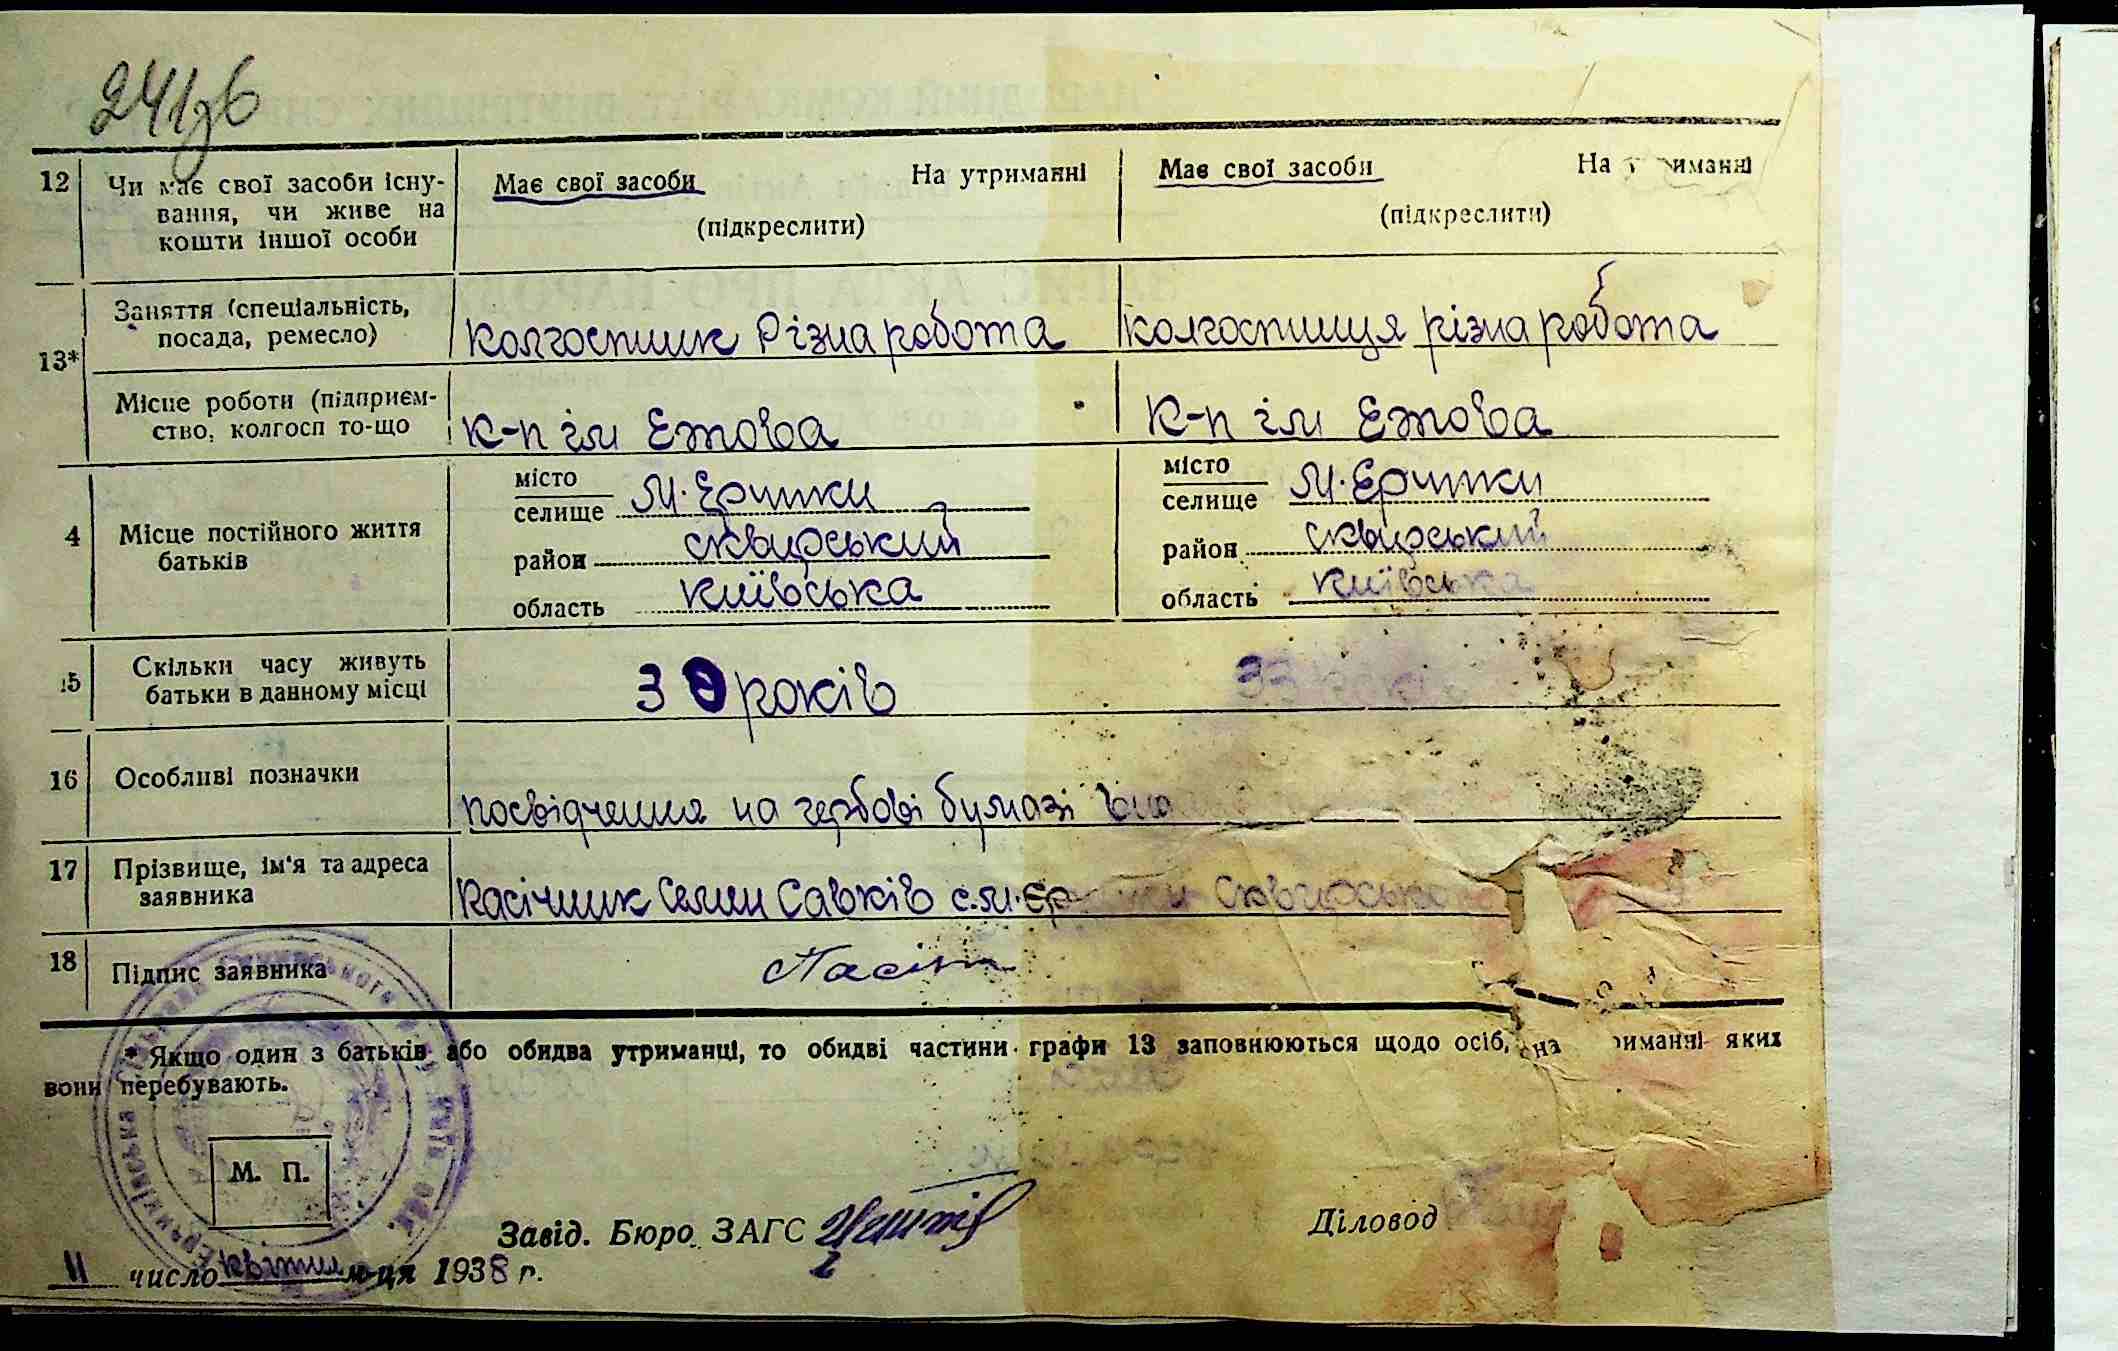 241зв
12 Чи має свої засоби існу- Має свої засоби На утриманні Має свої засоби На у риманні
вання, чи живе на (підкреслити) (підкреслити)
кошти іншої особи
13* Заняття (спеціальність, посада, ремесло) Колгоспник Різна робота колгоспниця різна робота
Місце роботи (підприєм-
ство, колгосп то-що К-п ім Ежова К-п ім Ежова
місто місто
селище М. Єрчики селище М. Єрчики
4 Місце постійного життя
батьків район сквирський район сквирський
область київська область київська
15 Скільки часу живуть
батьки в данному місці 3 років 33
16 Особливі позначки
посвідчення на гербові бумазі
17 Прізвище, ім'я та адреса
заявника Касічник Семен Савків с. М. Єр Сквирсько
18 Підпис заявника Касік
* Якщо один з батьків або обидва утриманці, то обидві частини графи 13 заповнюються щодо осіб, на риманні яких
вони перебувають.
М. П.
Завід. Бюро ЗАГС Діловод
11 число квітня м-ця 1938 р.